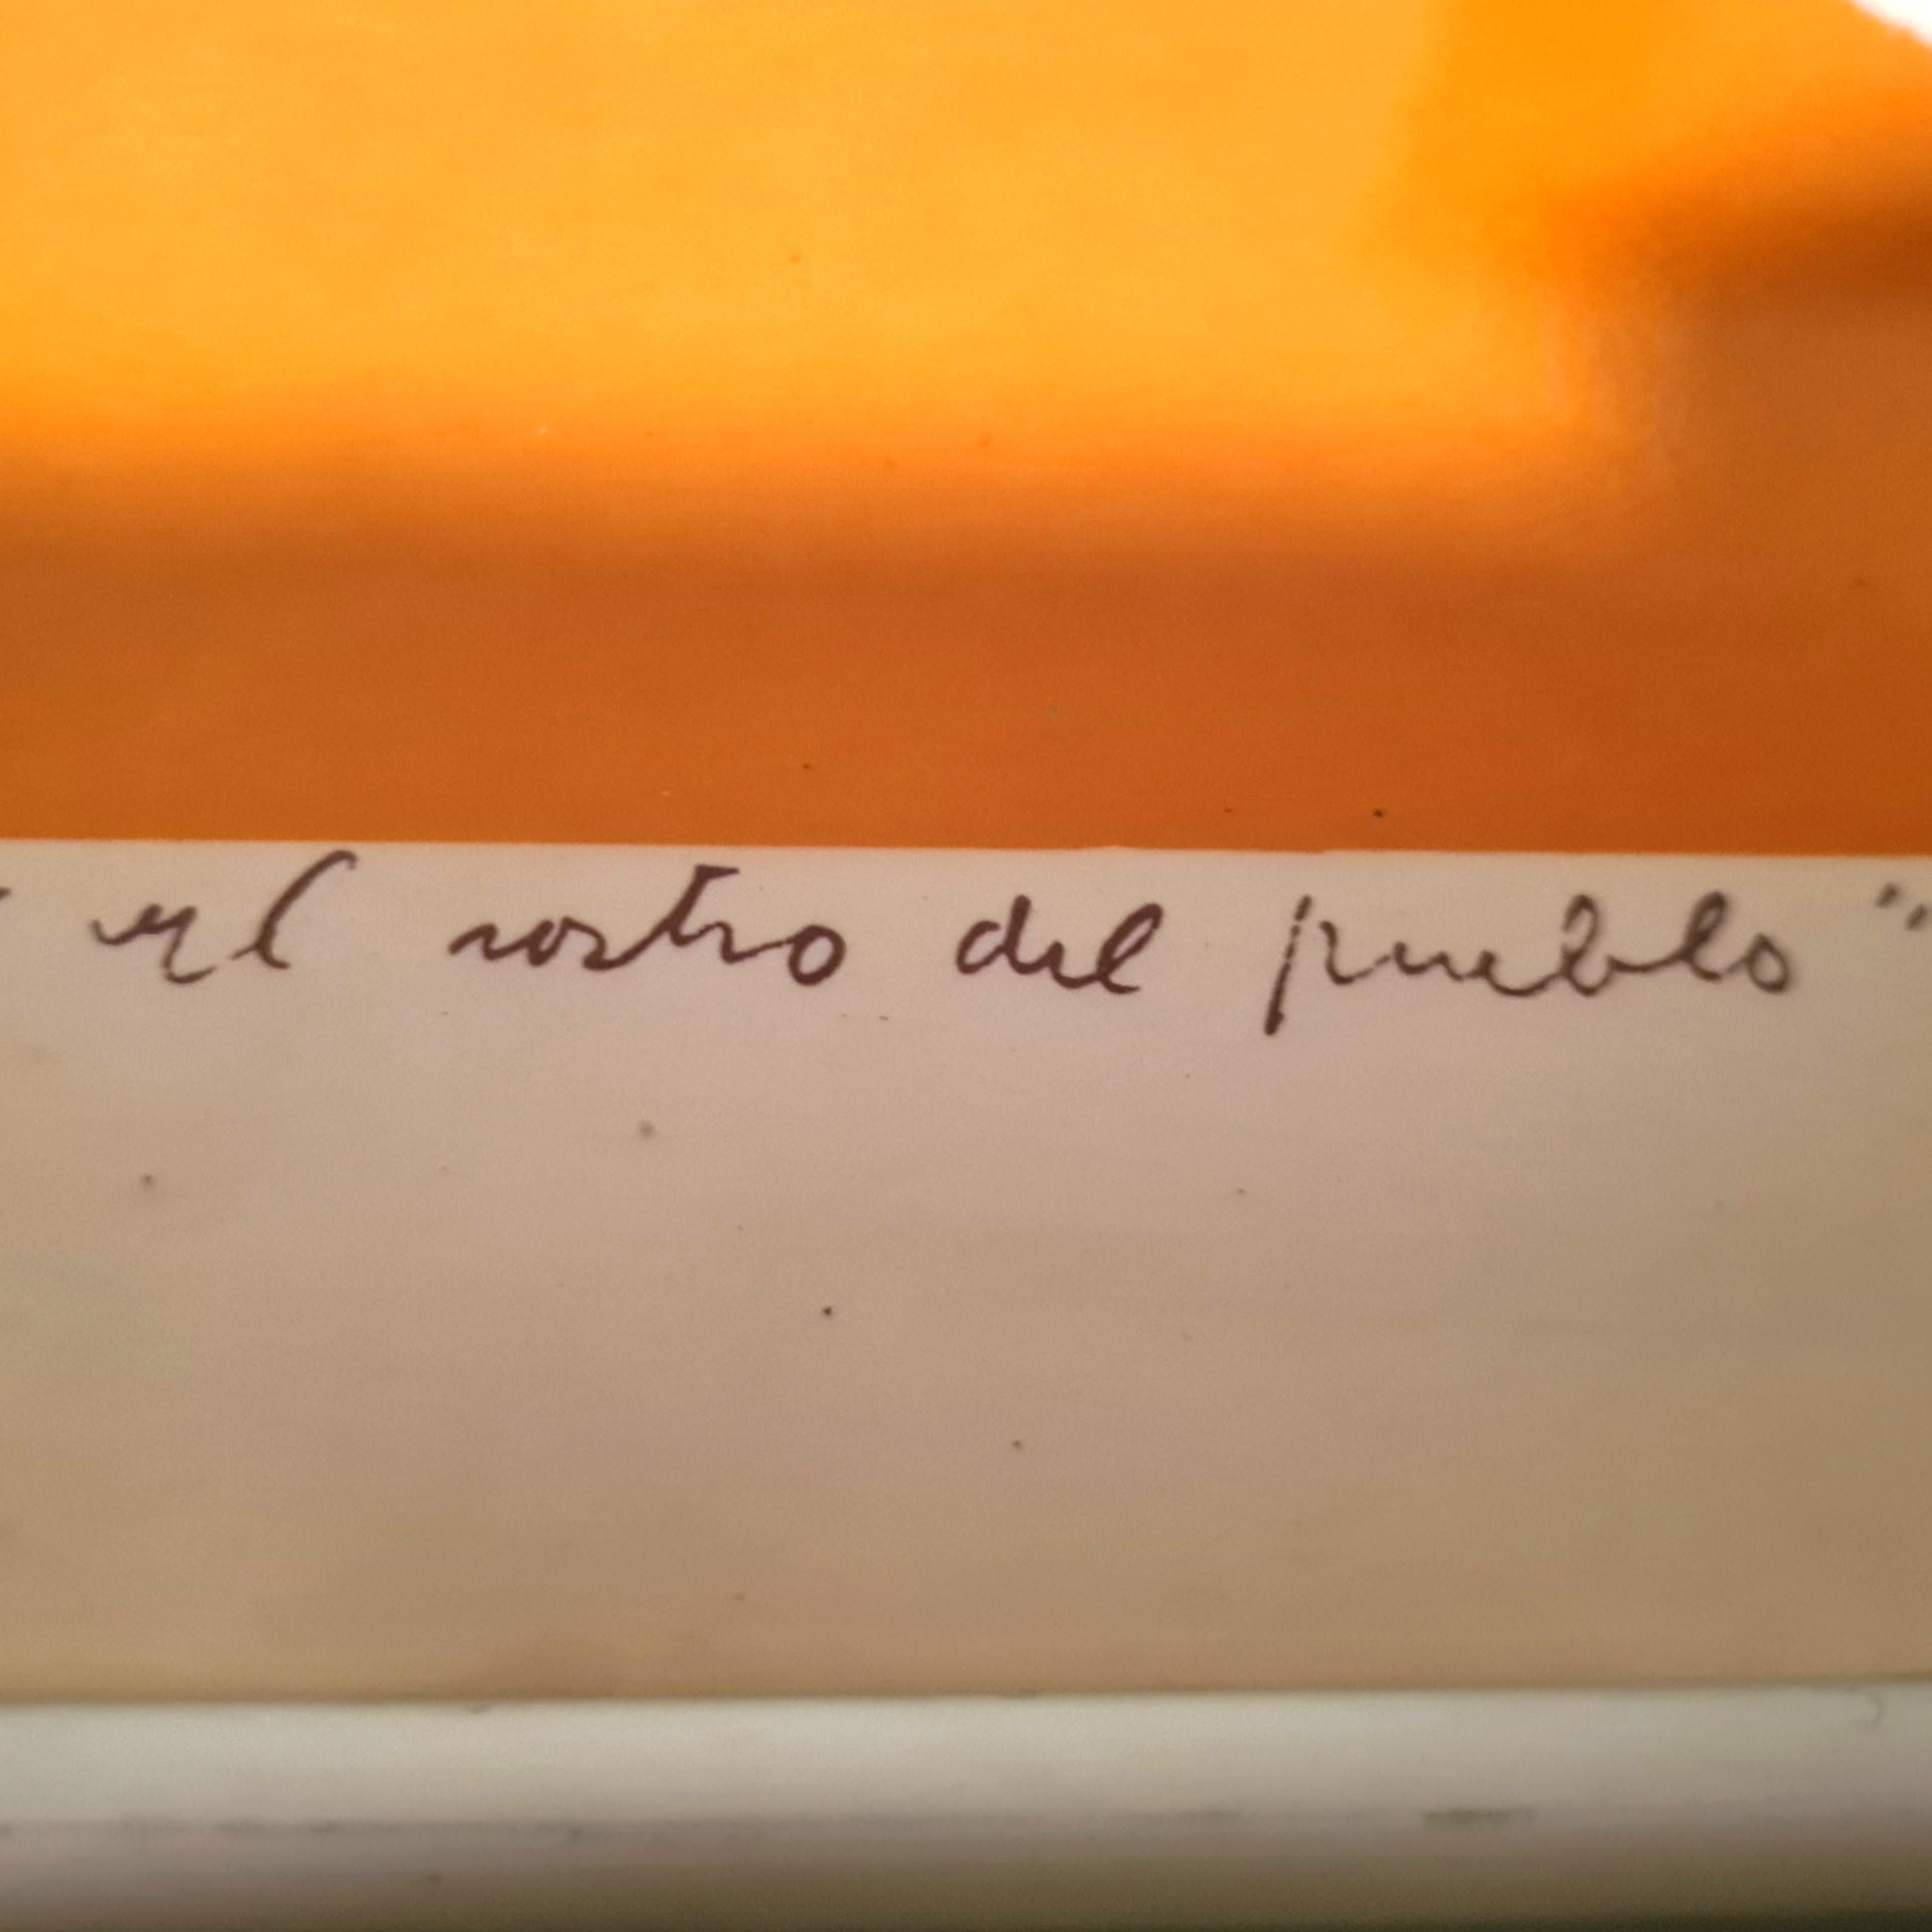 el rostro del pueblo"